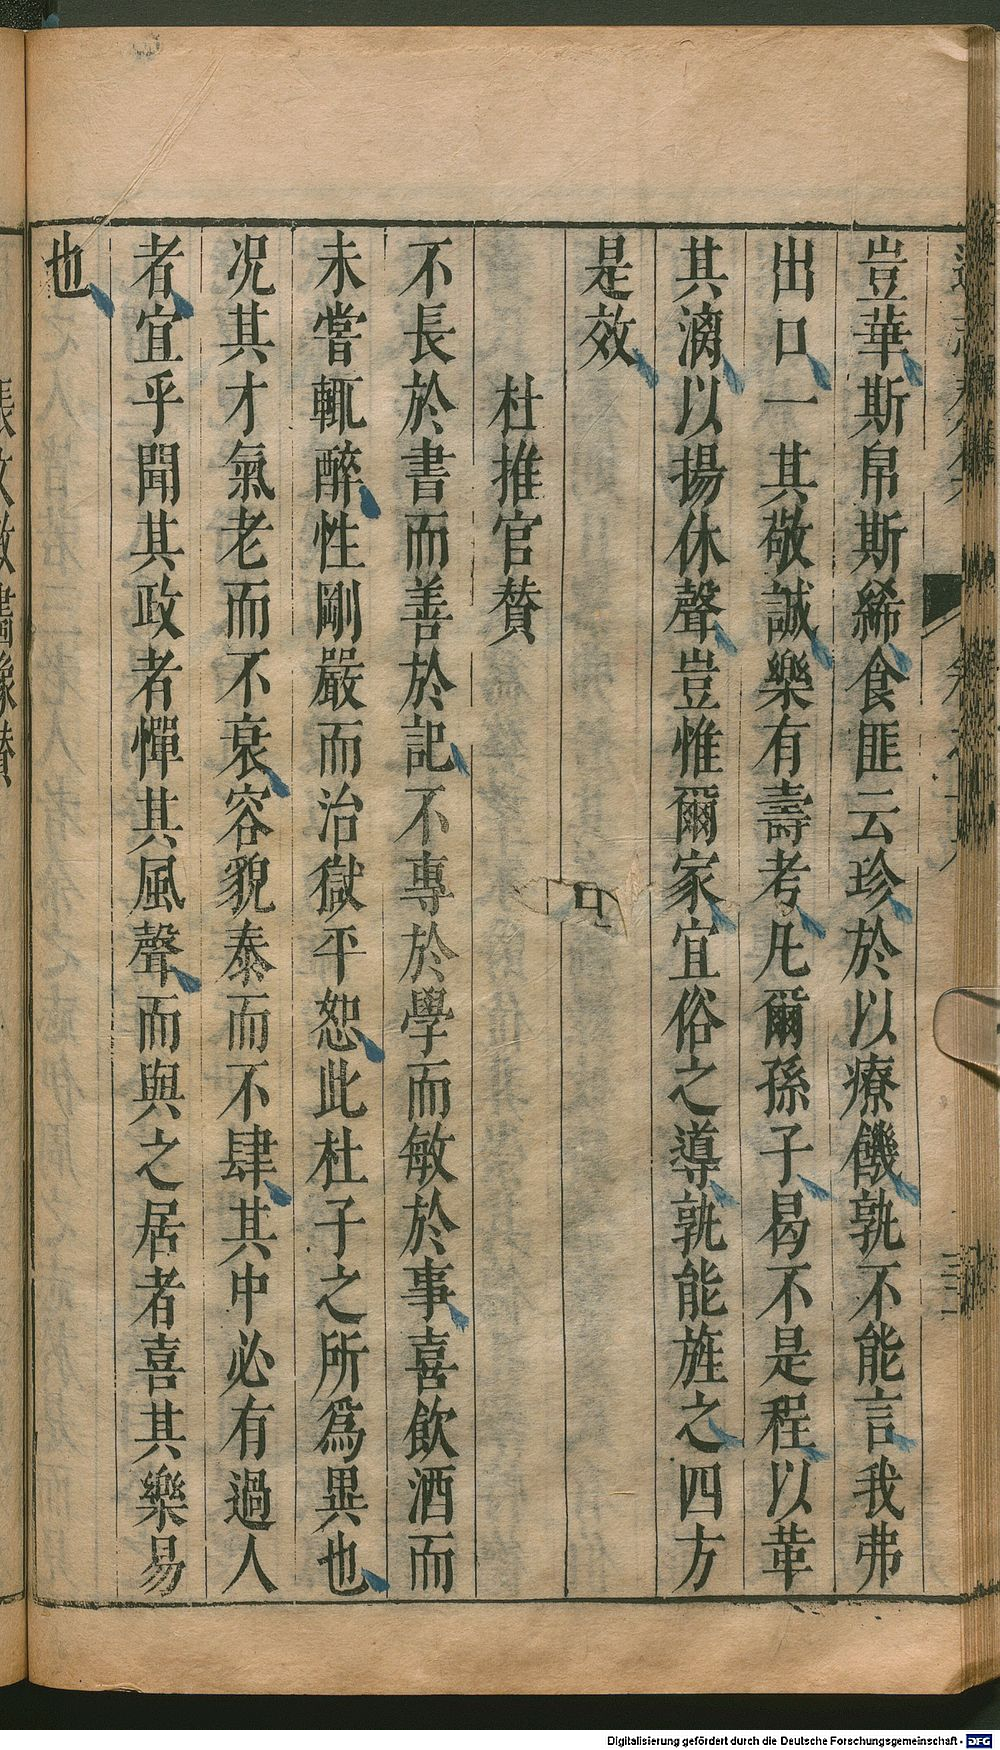 豈華斯帛斯絺食匪云珍於以療饑孰不能言我弗
出口一其敬誠樂有壽考凡爾孫子曷不是程以革
其漓以揚休聲豈惟爾家宜俗之導孰能旌之四方
是效
杜推官贊
不長於書而善於記不專於學而敏於事喜飲酒而
未嘗輒醉性剛嚴而治獄平恕此杜子之所爲異也
况其才氣老而不衰容貌泰而不肆其中必有過人
者宜乎聞其政者憚其風聲而與之居者喜其樂易
也
Digitalisierung gefördert durch die Deutsche Forschungsgemeinschaft - DFG